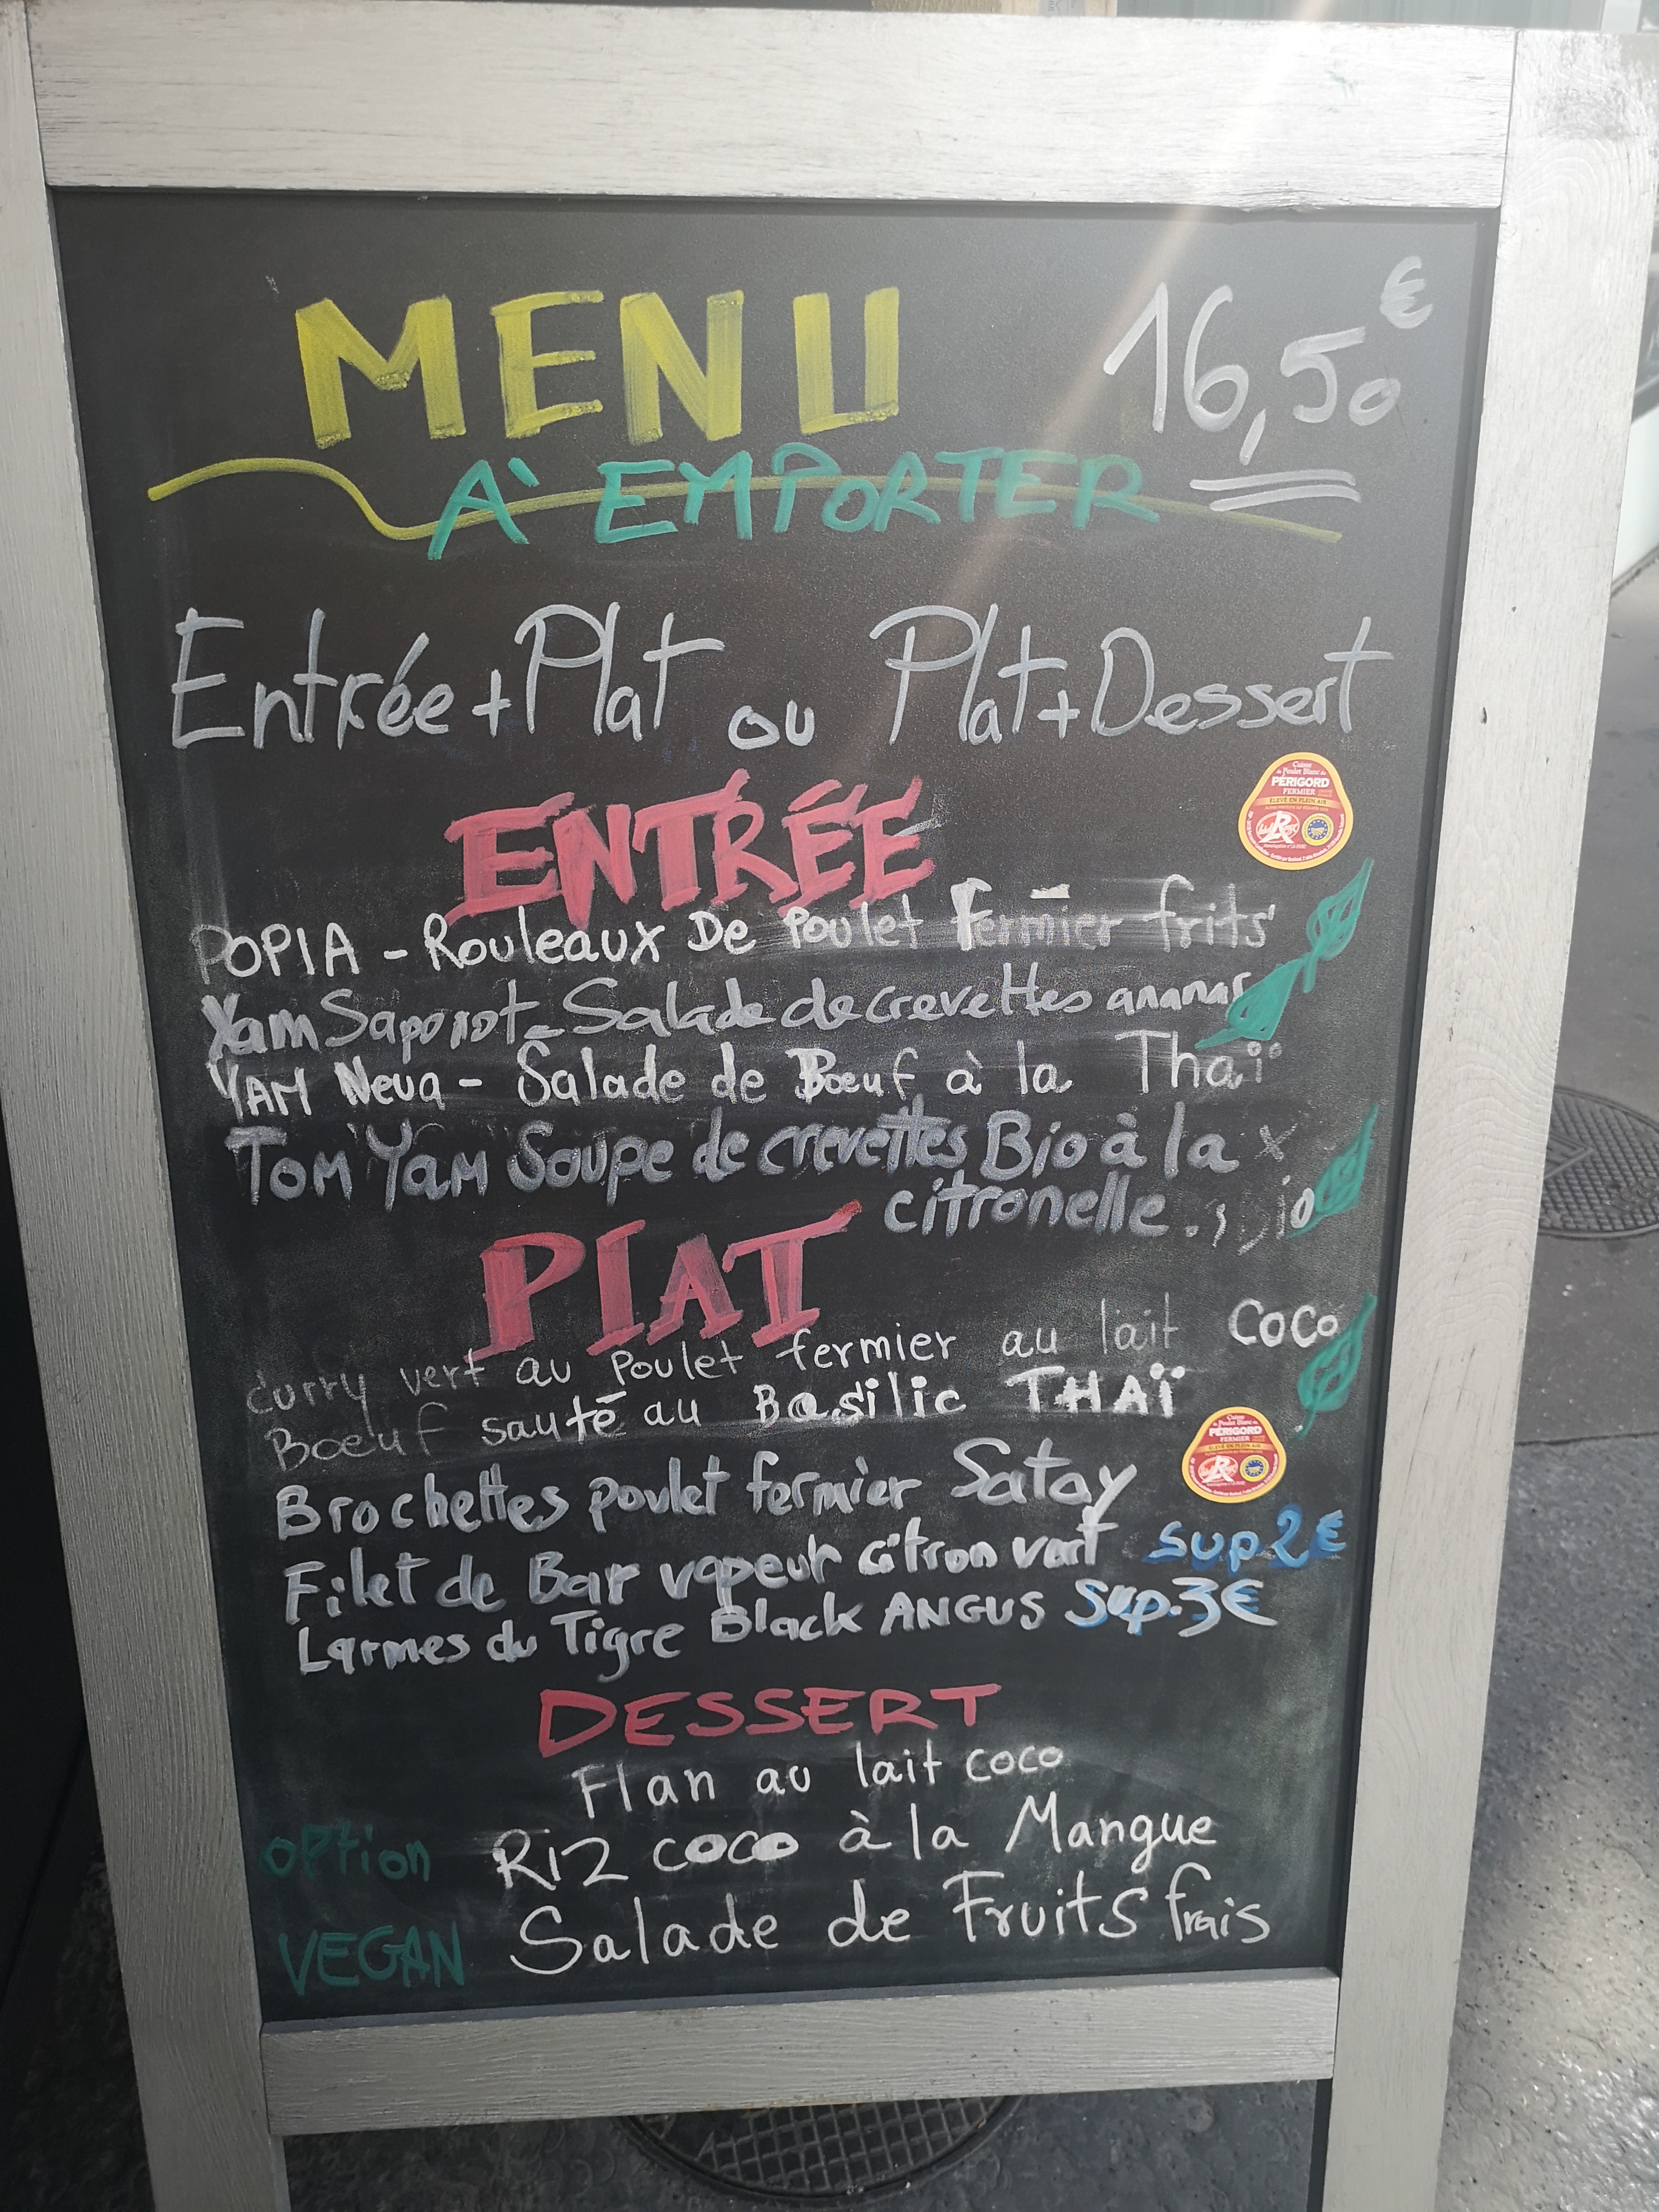 MENU 16,50€
À EMPORTER
Entrée+Plat ou Plat+Dessert
ENTRÉE
PÉRIGORD
FERMIER
ÉLEVÉ EN PLEIN AIR
POPIA - Rouleaux De Poulet Fermier frits
Yam Saporot - Salade de crevettes ananas
YAM Neua - Salade de Boeuf à la Thaï
TOM YAM Soupe de crevettes Bio à la
citronelle.
PLAT
curry vert au Poulet fermier au lait COCO
Boeuf sauté au Basilic THAÏ
Brochettes poulet fermier Satay
PÉRIGORD
FERMIER
ÉLEVÉ EN PLEIN AIR
Filet de Bar vapeur citron vert sup 2€
Larmes du Tigre Black ANGUS Sup.3€
DESSERT
Flan au lait coco
option Riz coco à la Mangue
VEGAN Salade de Fruits frais